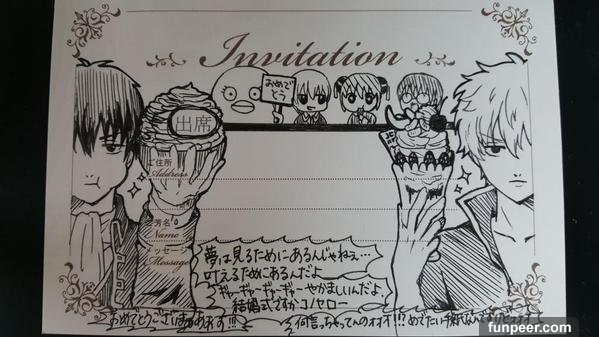 Invitation
おめで
とう
出席
ご住所
Address
芳名
Name
メッセージ
Message
夢は見るためにあるんじゃねぇ…
叶えるためにあるんだよ
ギャーギャーギャーギャーやかましいんだよ
結婚式ですかコノヤロー
おめでとうございまぁぁぁす!!!
何言っちゃってんのオオイ!!?
funpeer.com